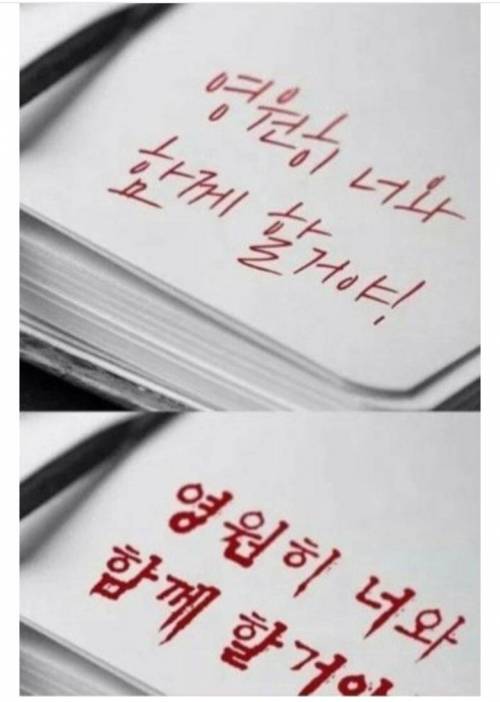 영원히 너와
함께 할거야!
영원히 너와
함께 할거야